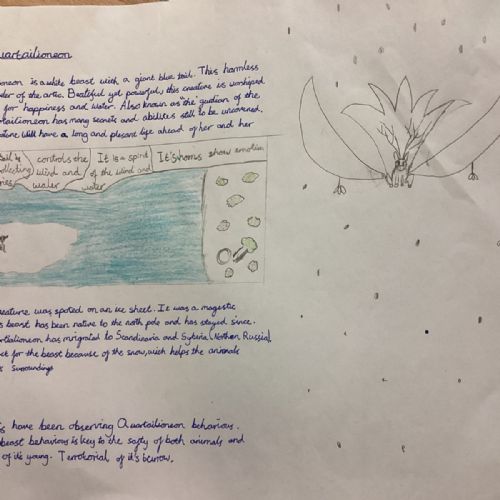 Quartailioneon
oneon is a white beast with a giant blue tail. This harmless
der of the artic. Beatiful yet powerful, this creature is worshiped
for happiness and water. Also known as "the guardian of the
rtailioneon has many secrets and abilites still to be uncovered.
ature will have a long and plesent life ahead of her and her
tail is
ollecting
controls the
wind and
water
It is a spirit
of the wind and
water
It's horns show emotion
reature was spoted on an ice sheet. It was a magestic
s beast has been native to the north pole and has stayed since.
artialioneon has mrigrated to Scandinavia and Syberia, Nothen, Russia).
ct for the beast because of the snow, wich helps the animals
s surroundings
s have been observing Quartailioneon behavious.
beast behavious is key to the safty of both animals and
of it's young. Terrotorial of it's burrow.